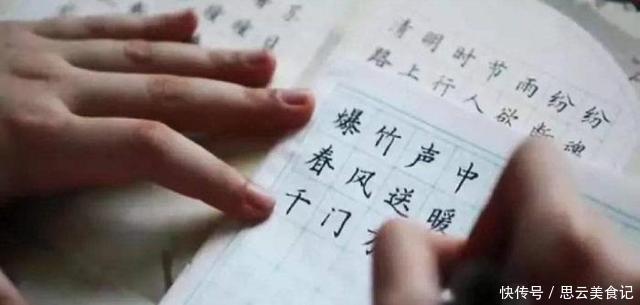 清明时节雨纷纷
路上行人欲断魂
爆竹声中
春风送暖
千门
快传号／思云美食记